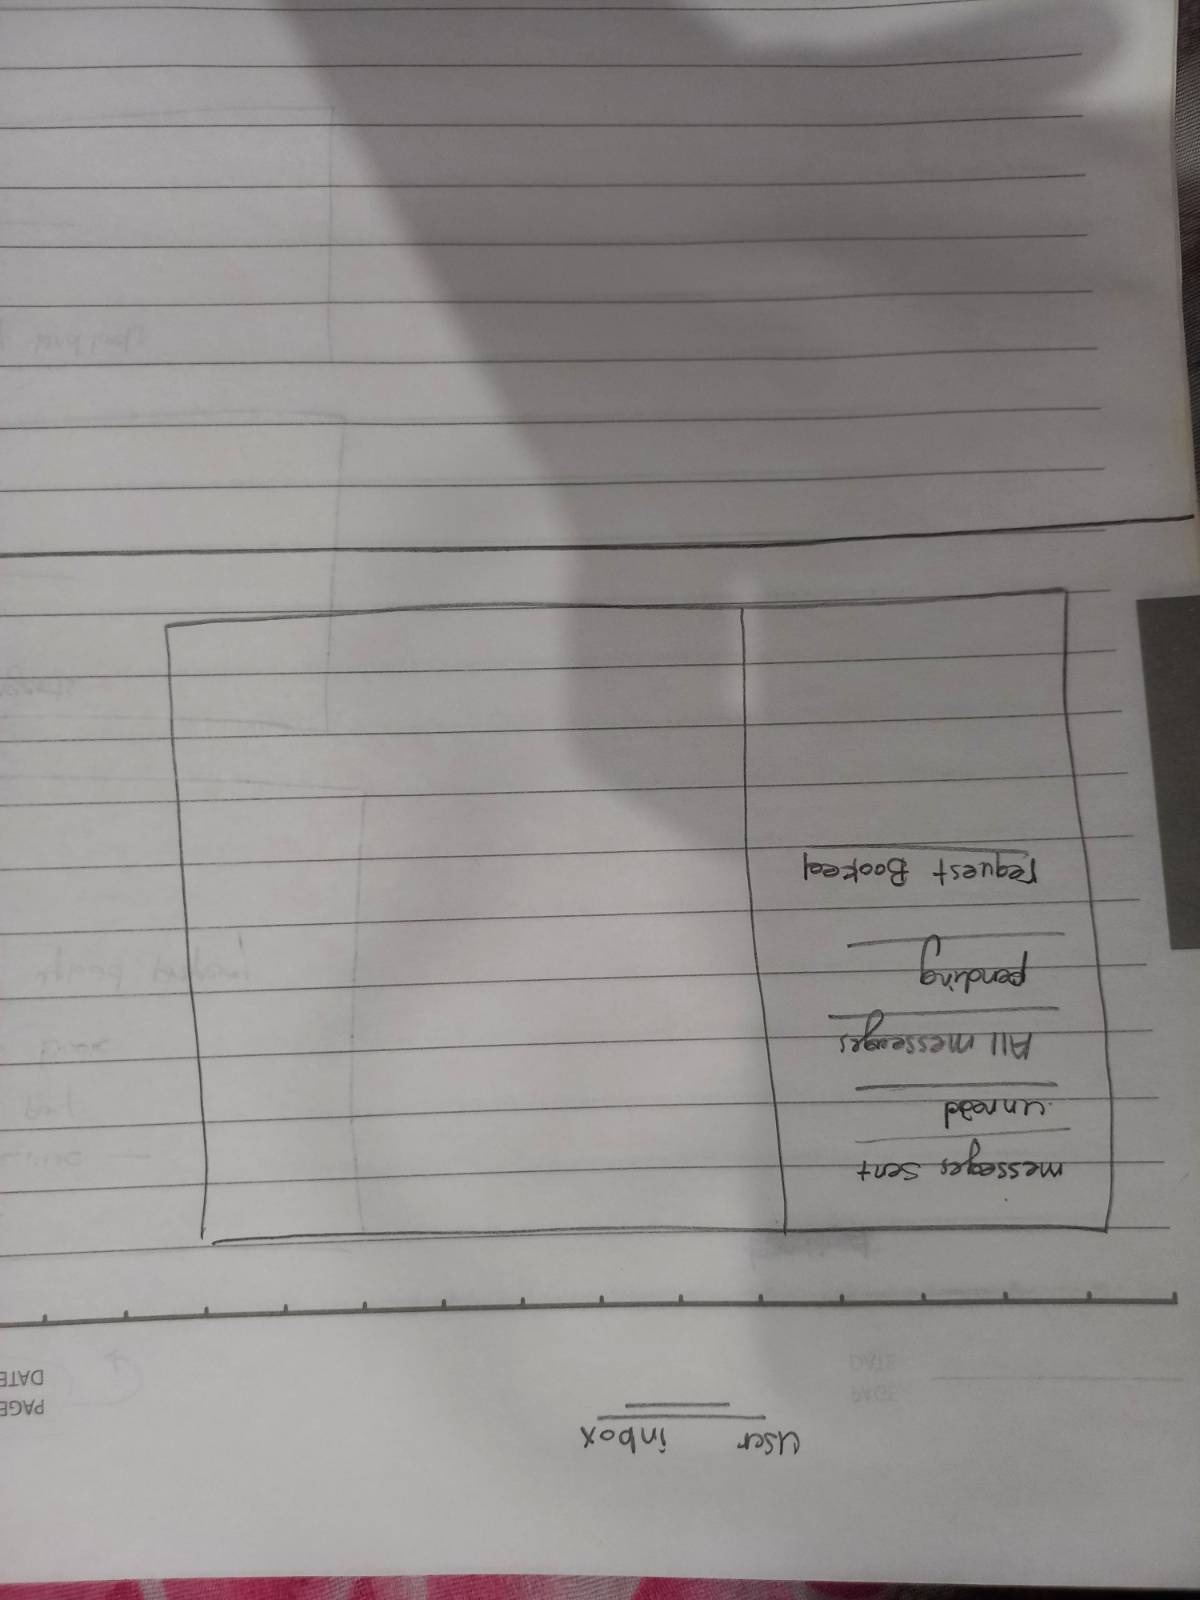 User inbox
PAGE
DATE
messages sent
unread
All messeges
pending
request Booked